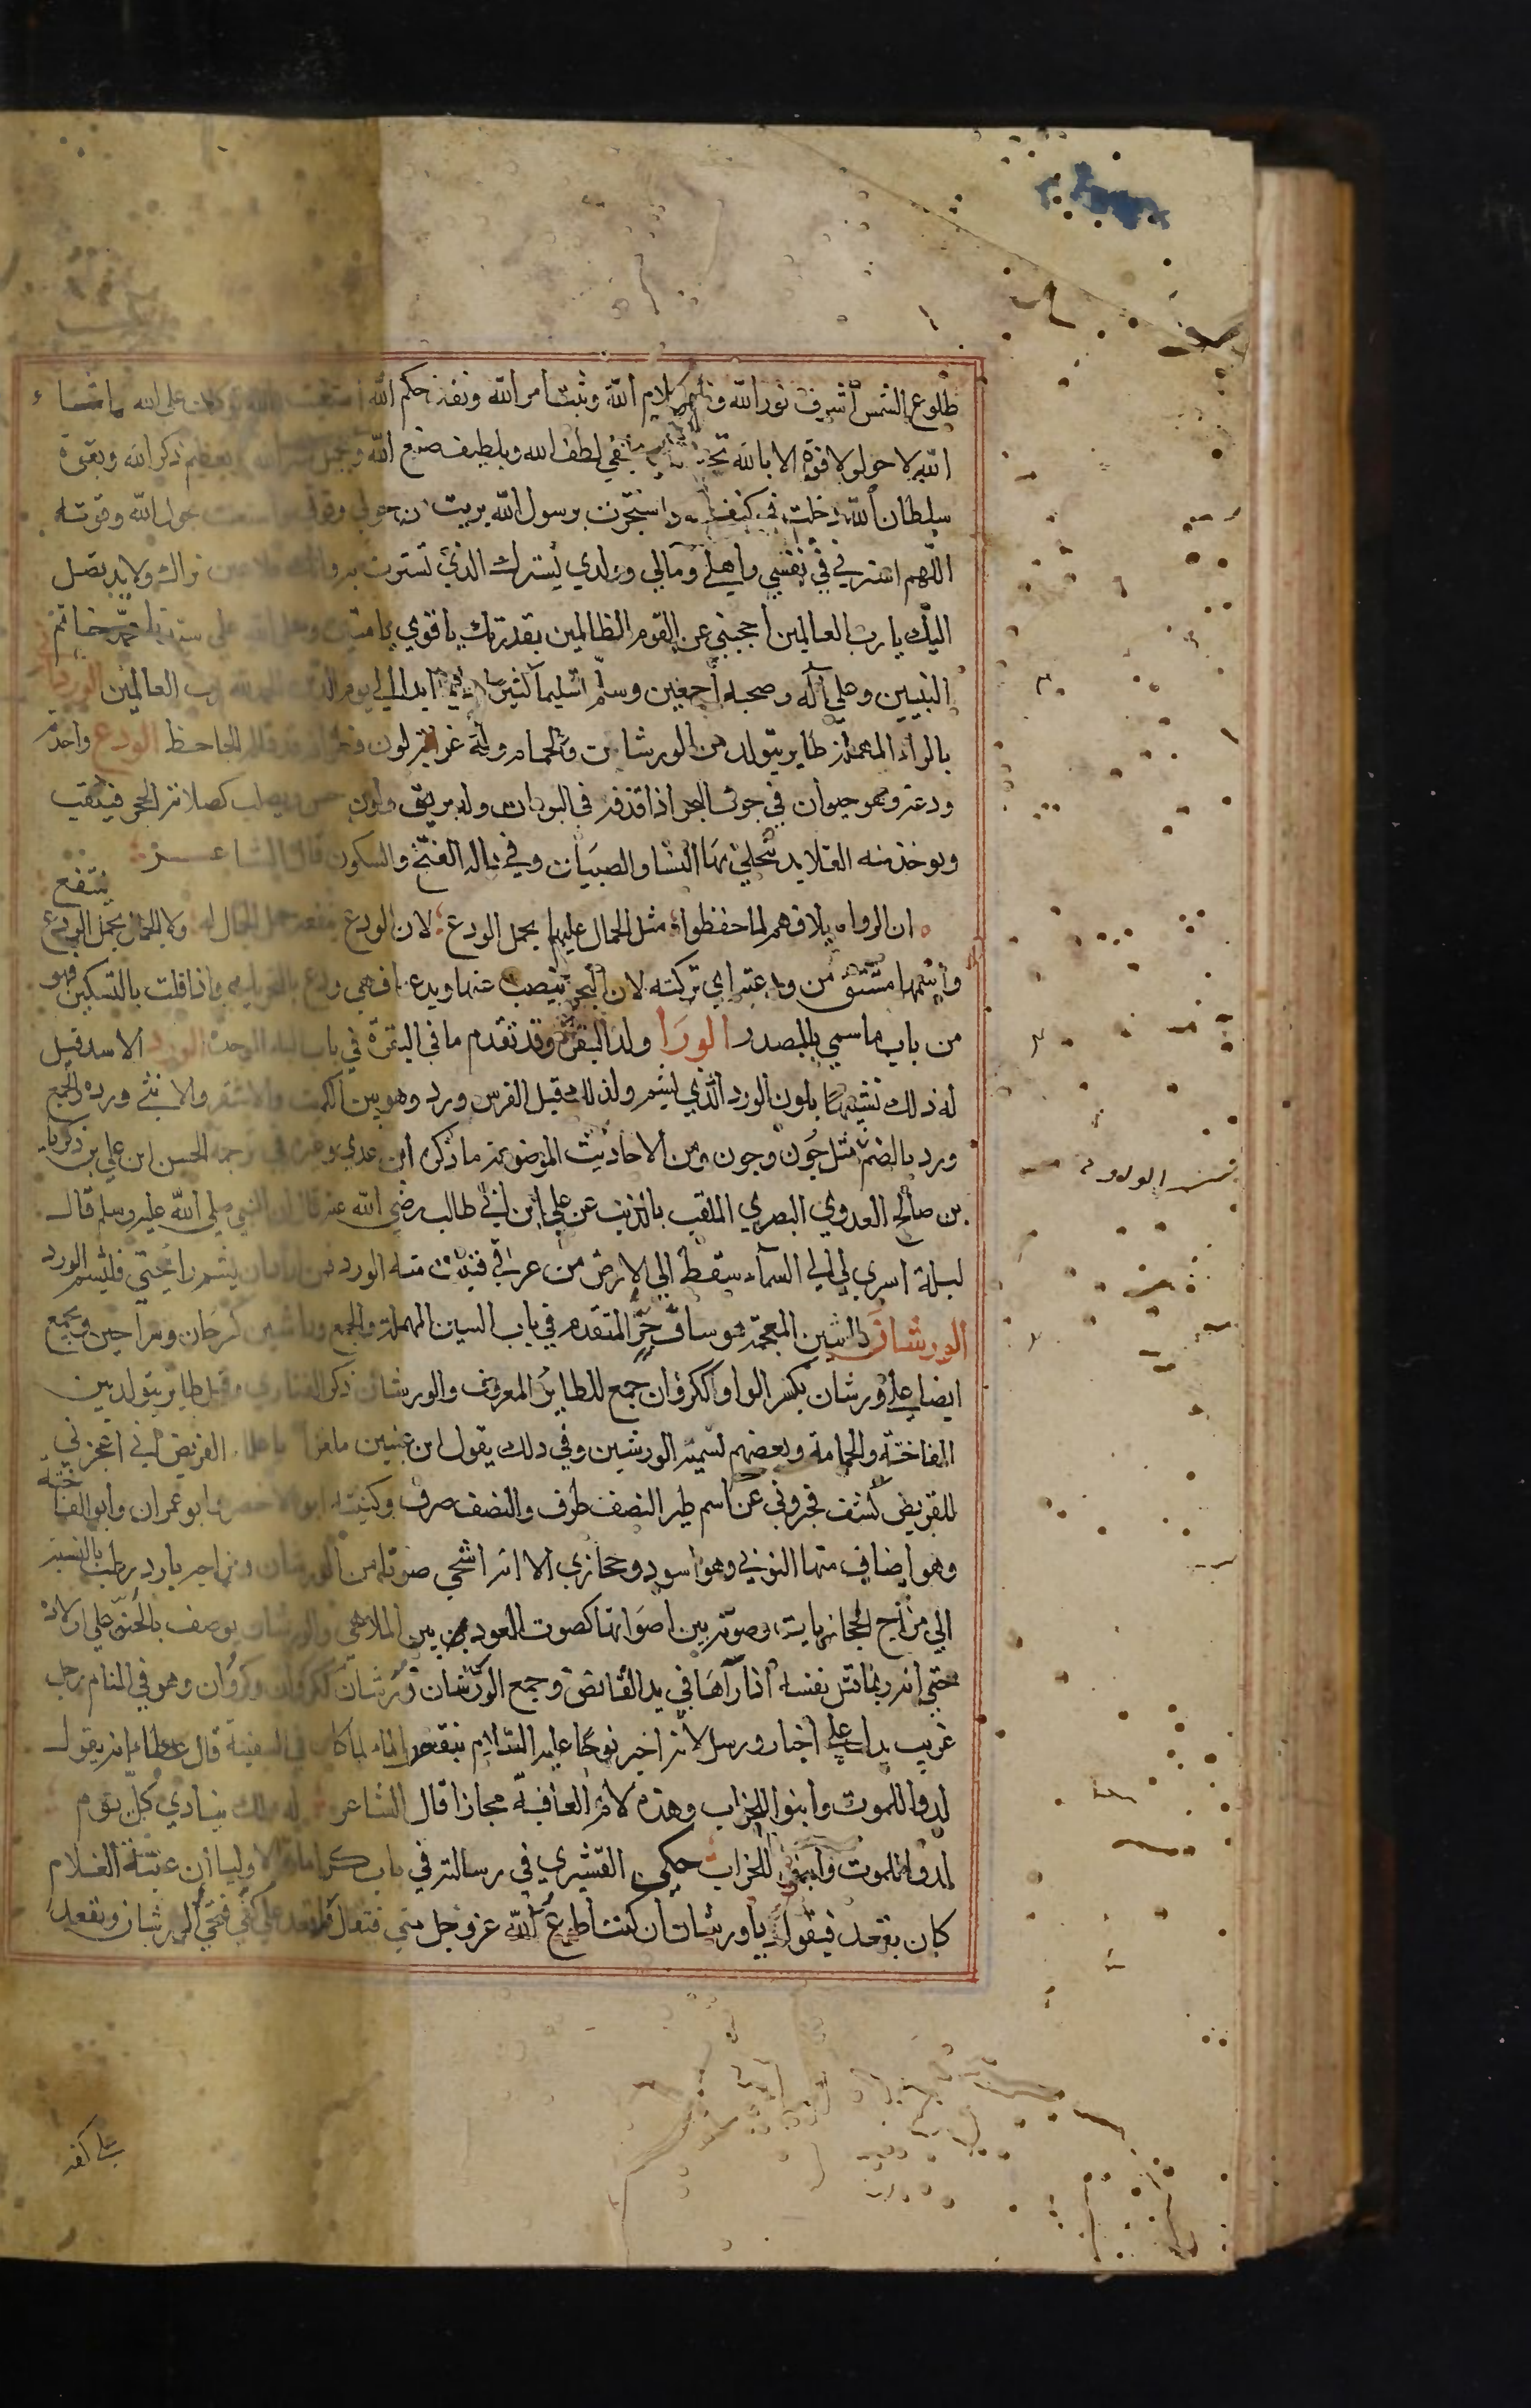 طلوع الشمس أشرف نور الله وظهر كلام الله وثبت أمر الله ونفذ حكم الله استعنت بالله توكلت على الله ما شاء
الله لا حول ولا قوة الا بالله بخفي لطف الله وبلطيف صنع الله وبجميل ستر الله وبعظيم ذكر الله وبقوة
سلطان الله دخلت في كنف واستجرت برسول الله بريت من حولي وقوتي واستعنت بحول الله وقوته
اللهم استرني في نفسي وأهلي ومالي وولدي بسترك الذي سترت به ذاتك فلا عين تراك ولا يد تصل
اليك يا رب العالمين احجبني عن القوم الظالمين بقدرتك يا قوي يا متين وصلى الله على سيدنا محمد خاتم
النبيين وعلي آله وصحبه أجمعين وسلم تسليما كثيرا ابدا الي يوم الدين الحمد لله رب العالمين
بالراء المهملة طاير يتولد من الورشان والحمام وله غرابة لون قاله الجاحظ الودع واحدة
ودعة وهو حيوان في جوف البحر اذا قذف في البر مات وله بريق ولون حسن ويصلب كصلابة الحجر فيثقب
ويوخذ منه القلايد تتحلي بها النسا والصبيان وفي داله الفتح والسكون قال الشاعر
ان الرواه بلا فهم لما حفظوا مثل الجمال عليها يحمل الودع لان الودع ينفعه حمل الجمال له ولا الجمال بحمل الودع ينتفع
وأسمها مشتق من ودعته اي تركته لان البحر ينضب عنها ويدعها فهي ودع بالتحريك واذا قلت بالتسكين فهو
من باب ما سمي بالمصدر الورا ولد البقرة وقد تقدم ما في البقرة في باب الباء الموحدة الورد الاسد قيل
له ذلك تشبيها بلون الورد الذي يشم ولذلك قيل الفرس ورد وهو بين الكميت والاشقر والانثي ورده والجمع
ورد بالضم مثل جون وجون ومن الاحاديث الموضوعة ما ذكره ابن عدي وغيره في ترجمة الحسن ابن علي بن زكريا
بن صالح العدوي البصري الملقب بالذيب عن علي ابن ابي طالب رضي الله عنه قال ان النبي صلي الله عليه وسلم قال
ليلة اسري بي الي السماء سقط الي الارض من عرقي فنبت منه الورد فمن اراد ان يشم رائحتي فليشم الورد
الورشان بالشين المعجمة هو ساق حر المتقدم في باب السين المهملة والجمع وراشين كرجان ومراجين ويجمع
ايضا علي ورشان بكسر الواو ككروان جمع للطاير المعروف والورشان ذكر القماري وقيل طاير يتولد بين
الفاختة والحمامة وبعضهم تسميه الورشين وفي ذلك يقول ابن عنين ملغزا يا علماء القريض اني اعجزني
للقريض كشف فخبروني عن اسم طير النصف ظرف والنصف حرف وكنيته ابو الاخضر وابو عمران وأبو الفاختة
وهو اصناف منها النوبي وهو اسود وحجازي الا انه اشجي صوتا من الورشان ومزاجه بارد رطب بالنسبة
الي مزاج الحجازيات وصوته بين أصواتها كصوت العود بين الملاهي والورشان يوصف بالحنو علي اولاده
حتي انه ربما قتل نفسه اذا رآها في يد القانص وجمع الورشان ورشان ككروان وكروان وهو في المنام رجل
غريب يدل علي اخبار ورسل لانه اخبر نوحا عليه السلام بنقص الماء لما كان في السفينة قال عطاء انه يقول
لدوا للموت وابنوا للخراب وهذه لام العاقبة مجازا قال الشاعر له ملك ينادي كل يوم
لدوا للموت وابنوا للخراب حكى القشيري في رسالته في باب كرامات الاوليا أن عتبة الغلام
كان يقعد فيقول يا ورشان ان كنت أطوع لله عز وجل مني فتعال فاقعد علي كفي فتجي الورشان وتقعد
علي كفه